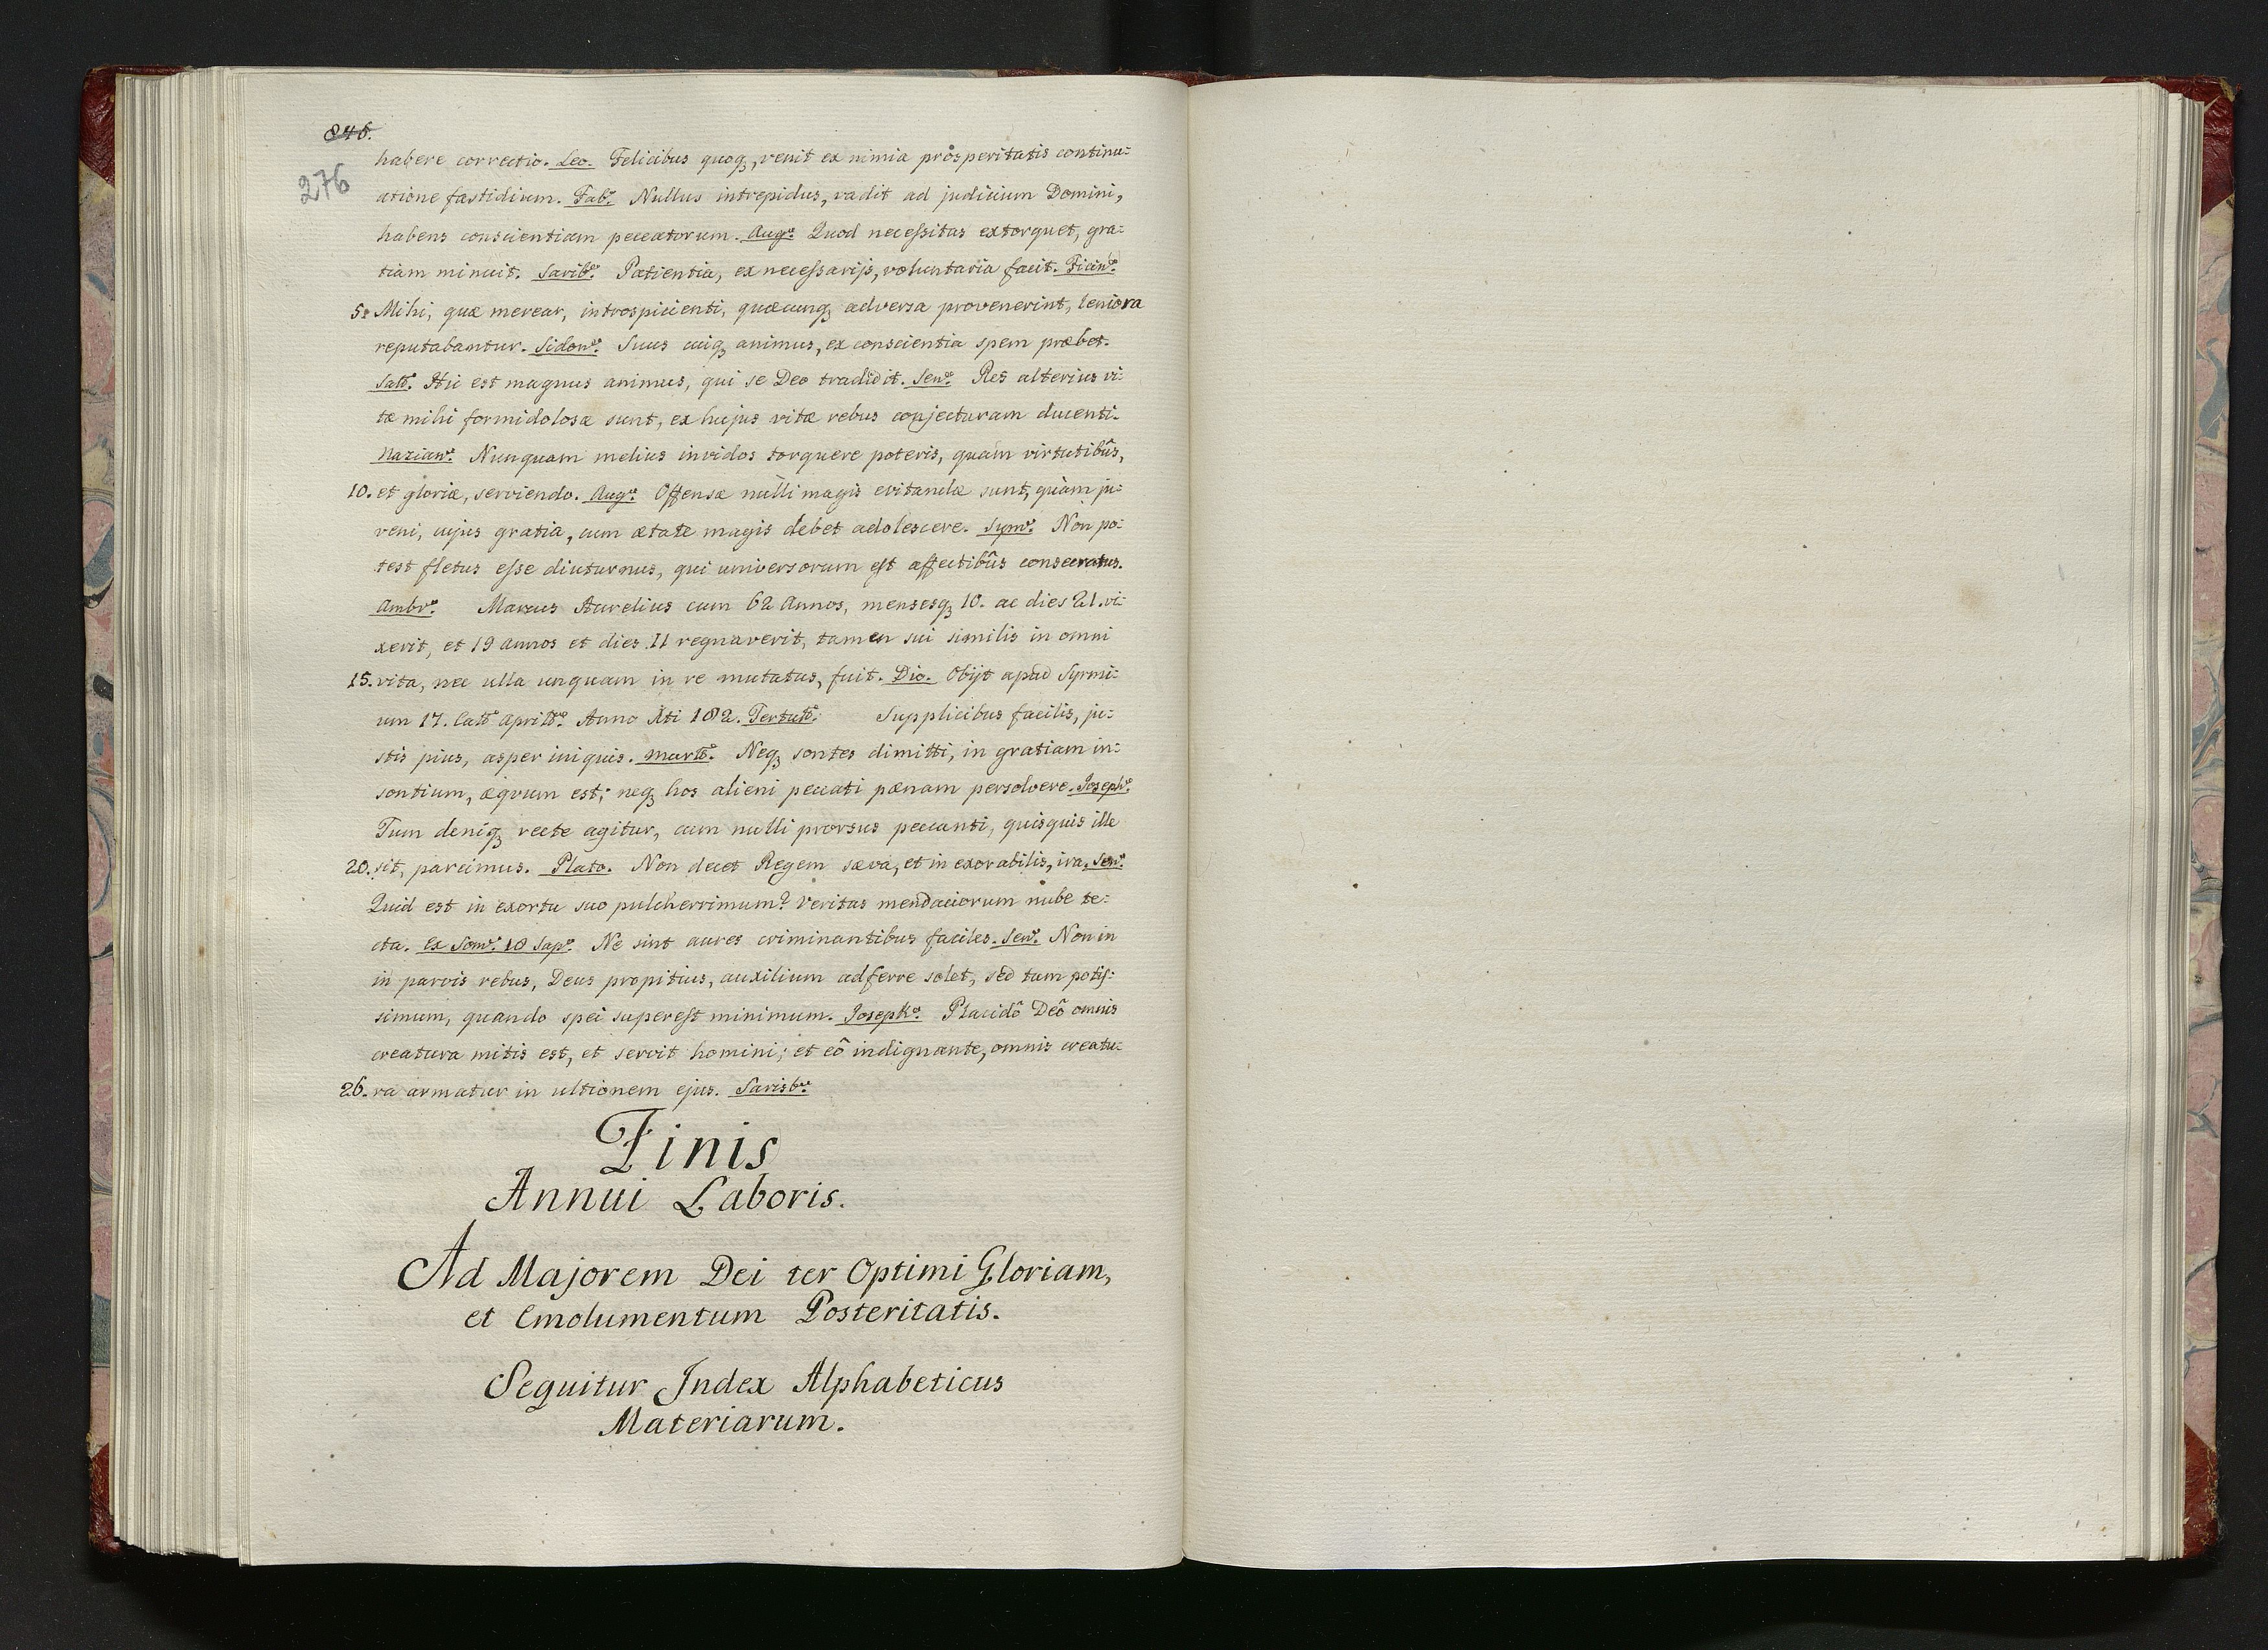 846.
276
habere correctio. Leo. Felicibus quoq, venit ex nimia prosperitatis continu:
atione fastidium. Fab: Nullus intrepidus, vadit ad judicium Domini,
habens conscientiam peccatorum. Aug: Quod necessitas extorquet, gra:
tiam minuit. Sarib: Patientia, ex necessarijs, voluntaria facit. Ficin:
5: Mihi, quæ merear, introspicienti, quæcunq adversa provenerint, leniora
reputabantur. Sidon: Suus cuiq animus, ex conscientia spem præbet.
Sall: Hic est magnus animus, qui se Deo tradidit. Sen: Res alterius vi:
tæ mihi formidolosæ sunt, ex hujus vitæ rebus conjecturam ducenti.
Nazian: Nunquam melius invidos torquere poteris, quàm virtutibûs,
10. et gloriæ, serviendo. Aug: Offensæ nulli magis evitandæ sunt, quàm ju:
veni, cujus gratia, cum ætate magis debet adolescere. Sym: Non po:
test fletus esse diuturnus, qui universorum est affectibûs consecratus.
Ambr: Marcus Aurelius cum 62 Annos, mensesq 10. ac dies 21. vi:
xerit, et 19 annos et dies 11 regnaverit, tamen sui similis in omni
15. vita, nec ulla unquam in re mutatus, fuit. Dio. Obijt apud Syrmi:
um 17. Cal: April: Anno Xti 182. Tertul: Supplicibus facilis, ju:
stis pius, asper iniquis. Mart: Neq sontes dimitti, in gratiam in:
sontium, æqvum est; neq hos alieni peccati pænam persolvere. Joseph:
Tum deniq recte agitur, cum nulli prorsus peccanti, quisquis ille
20. sit, parcimus. Plato. Non decet Regem sæva, et inexorabilis, ira. Sen:
Quid est in exortu suo pulcherrimum? Veritas mendaciorum nube te:
cta. Ex Som: 10 Sap: Ne sint aures criminantibus faciles. Sen: Non in
in parvis rebus, Deus propitius, auxilium adferre solet, sed tum potis:
simum, quando spei superest minimum. Joseph: Placidô Deô omnis
creatura mitis est, et servit homini; et eô indignante, omnis creatu:
26. ra armatur in ultionem ejus. Sarisb:
Finis
Annui Laboris.
Ad Majorem Dei ter Optimi Gloriam,
et Emolumentum Posteritatis.
Sequitur Index Alphabeticus
Materiarum.